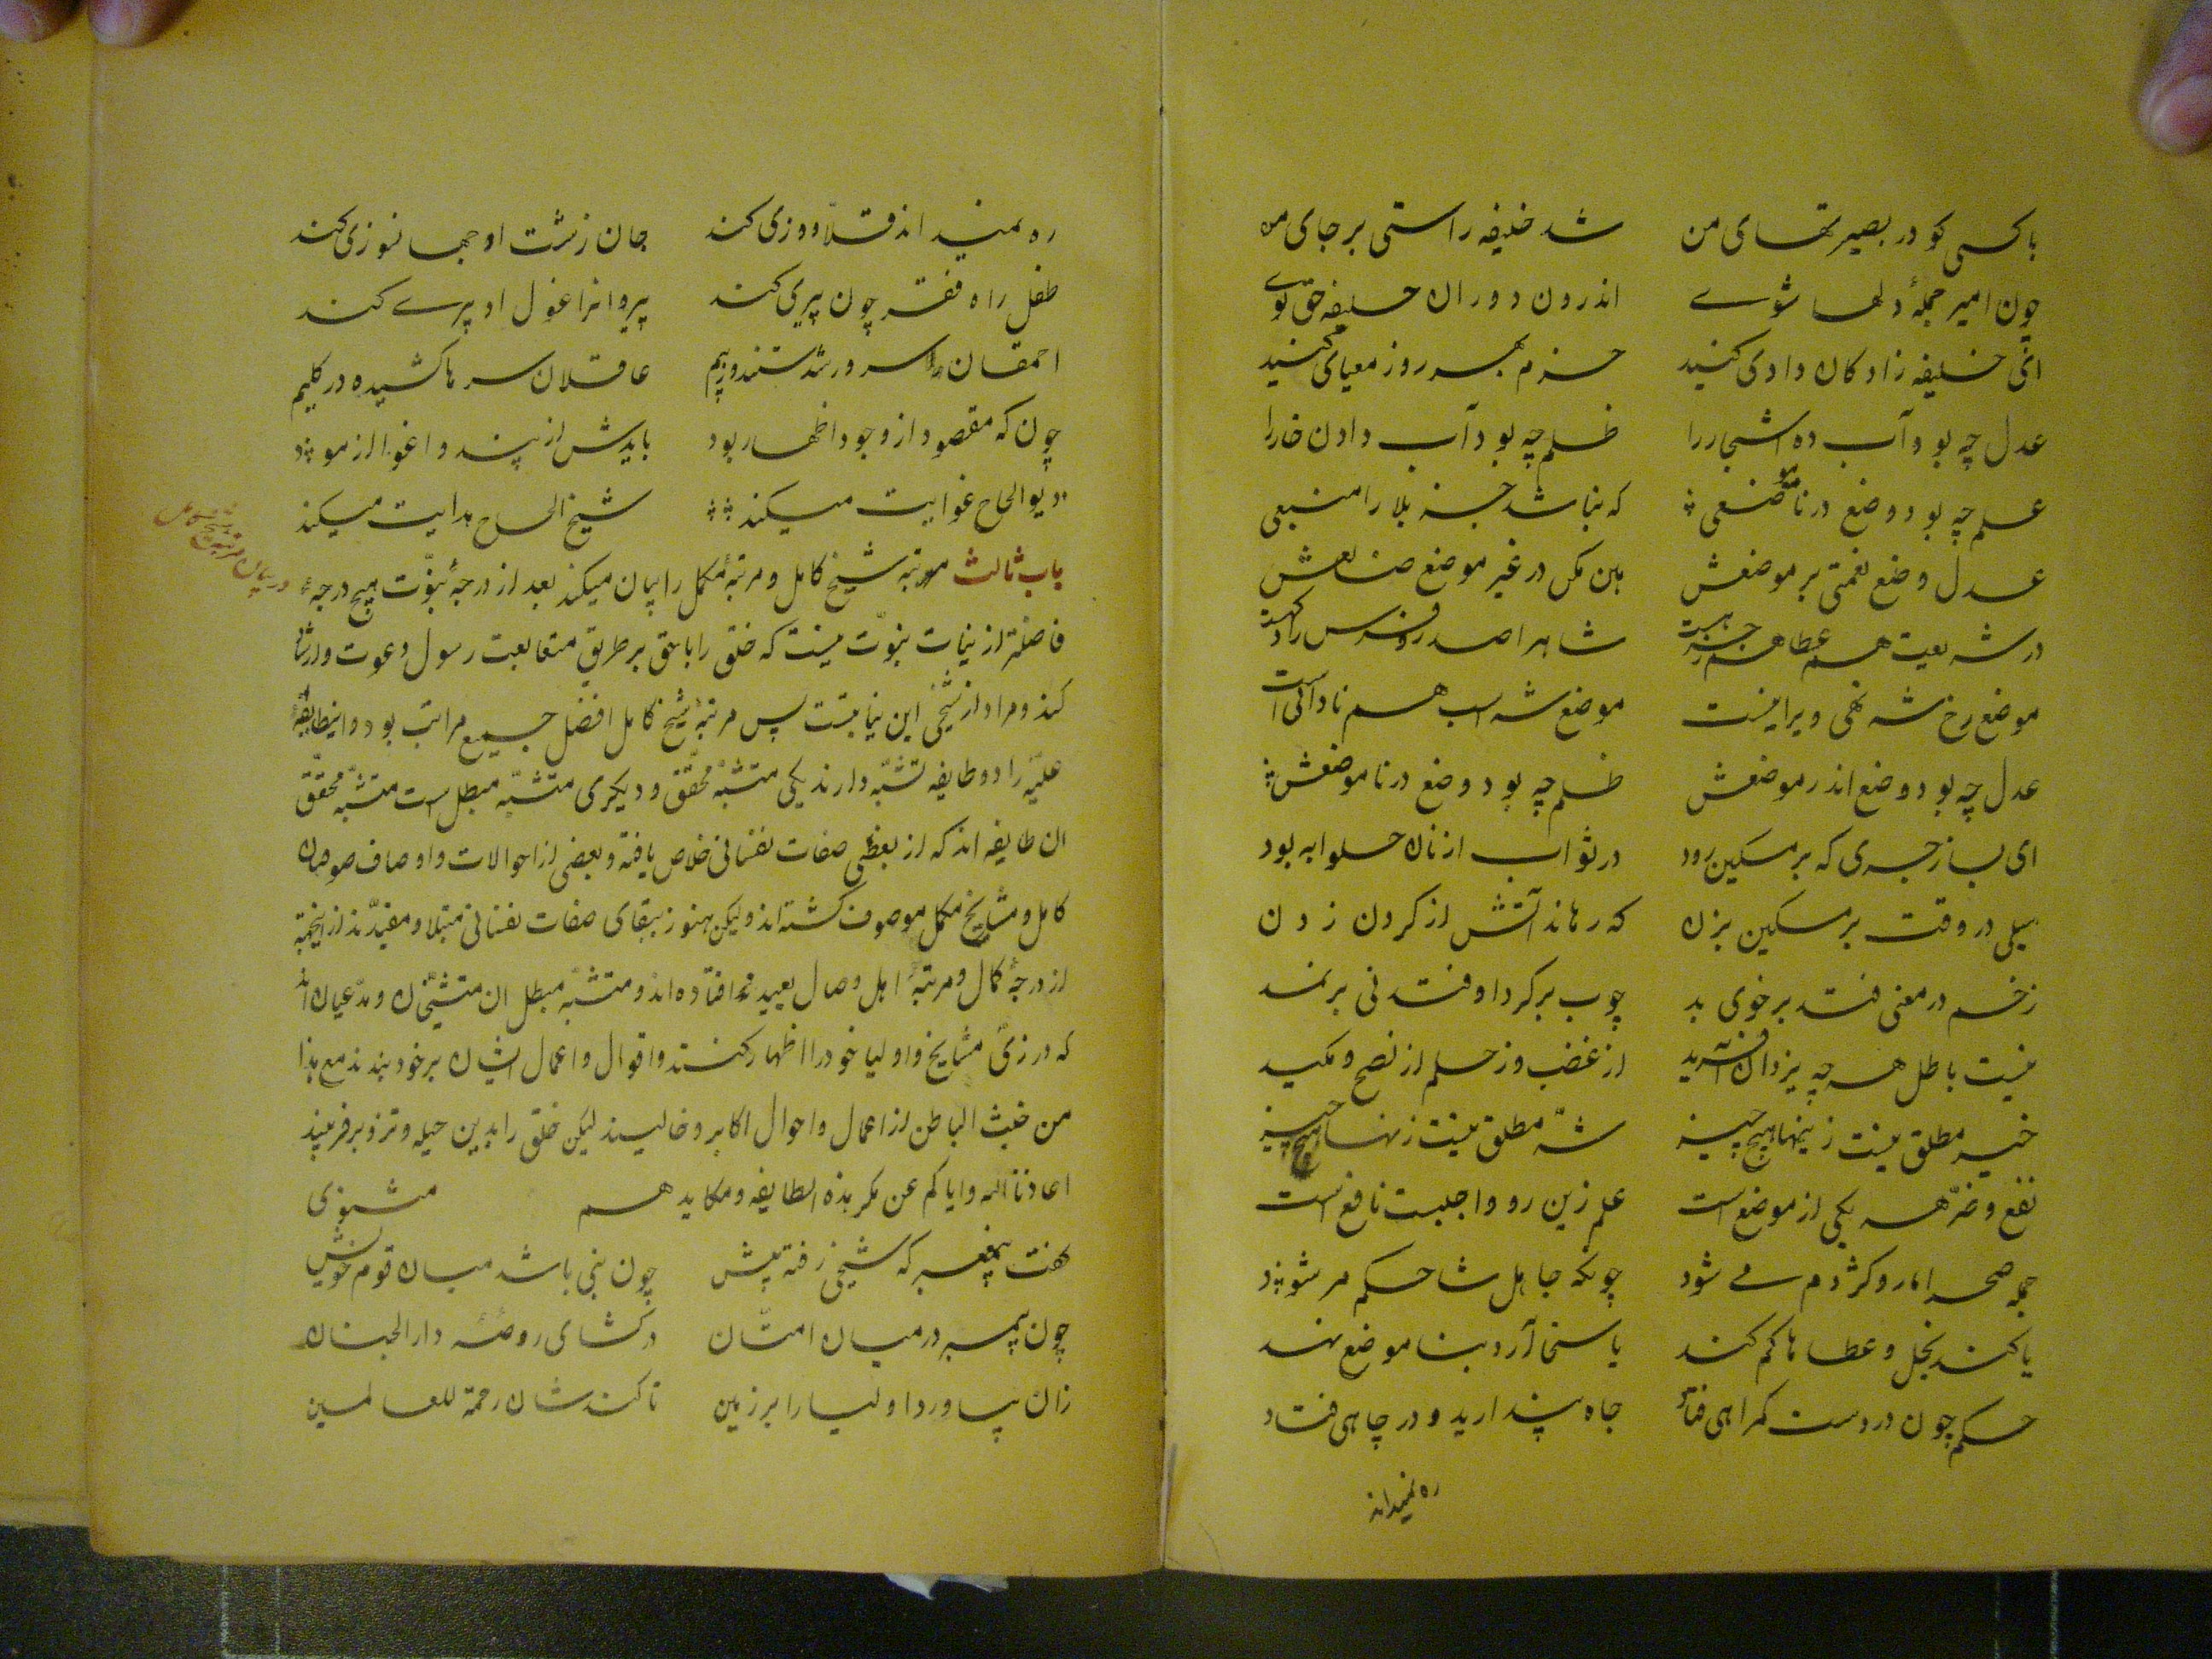 با کسی کو در بصیرتهای من شد خلیفه راستی بر جای من
چون امیر جملهٔ دلها شوے اندرون دوران خلیفه حق توے
ای خلیفه زادکان دادی کنید حزم بهر روز معیادی کنید
عدل چه بود آب ده اشجار را ظلم چه بود آب دادن خار را
ظلم چه بود وضع در ناموضعی که نباشد جز بلا را منبعی
عدل وضع نعمتی بر موضعش هین مکن در غیر موضع ضایعش
در شریعت هم عطا هم زجر هست شاه را صدر و فرس را درکهست
موضع رخ شه نهی ویرانیست موضع شه اسب هم نادانی است
عدل چه بود وضع اندر موضعش ظلم چه بود وضع در ناموضعش
ای بسا زجری که بر مسکین رود در ثواب از نان حلوا به بود
سیلی در وقت بر مسکین بزن که رهاند آتش از کردن زدن
زخم در معنی فتد بر خوی بد چوب بر کرد اوفتد نی بر نمد
نیست باطل هر چه یزدان آفرید از غضب وز حلم از نصح و مکید
خیر مطلق نیست زینها هیچ چیز شر مطلق نیست زینها هیچ چیز
نفع و ضر هر یکی از موضع است علم زین رو واجبست نافع است
جمله صحرا مار و کژدم مے شود چونکه جاهل شاه حکم مر شود
یا کند بخل و عطاها کم کند یا سخا آرد بنا موضع نهد
حکم چون در دست کمراهی فتاد جاه پندارید و در چاهی فتاد
ره نمیداند
ره نمیداند قلاووزی کند جان زشت او جهانسوزی کند
طفل راه فقر چون پیری کند پیروانرا غول ادبیرے کند
احمقان سرور شدستند و ز بیم عاقلان سرها کشیده در کلیم
چون که مقصود از وجود اظهار بود بایدش از پند و اغوا ازمود
دیو الحاح غوایت میکند شیخ الحاح هدایت میکند
باب ثالث مرتبه شیخ کامل و مرتبهٔ مکمل را بیان میکند بعد از درجهٔ نبوّت هیچ درجهٔ
در بیان مرتبه شیخ کامل
فاضلتر از نیابت نبوّت نیست که خلق را با حق بر طریق متابعت رسول دعوت و ارشاد
کند و مراد از شیخی این نیابتست پس مرتبهٔ شیخ کامل افضل جمیع مراتب بود و اینطایفهٔ
علیّه را دو طایفه تشبّه دارند یکی متشبّه محقّق و دیکری متشبّه مبطل است متشبّه محقّق
ان طایفه اند که از بعضی صفات نفسانی خلاص یافته و بعضی از احوالات و اوصاف صوفیان
کامل و مشایخ مکمل موصوف کشته اند ولیکن هنوز ببقای صفات نفسانی مبتلا و مقیدند از اینجهة
از درجهٔ کمال و مرتبهٔ اهل وصال بعید افتاده اند و متشبّه مبطل ان متشیّخان و مدّعیان اند
که در زیّ مشایخ و اولیا خود را اظهار کنند و اقوال و اعمال ایشان بر خود بندند مع هذا
من خبث الباطن از اعمال و احوال اکابر خالیند لیکن خلق را بدین حیله و تزویر فریبند
اعاذنا الله وایاکم عن مکر هذه الطایفه و مکایدهم مثنوی
کفت پیغمبر که شیخی رفته پیش چون نبی باشد میان قوم خویش
چون پیمبر در میان امتان درکشای روضهٔ دار الجنان
زان بیاورد اولیا را بر زمین تا کندشان رحمة للعالمین